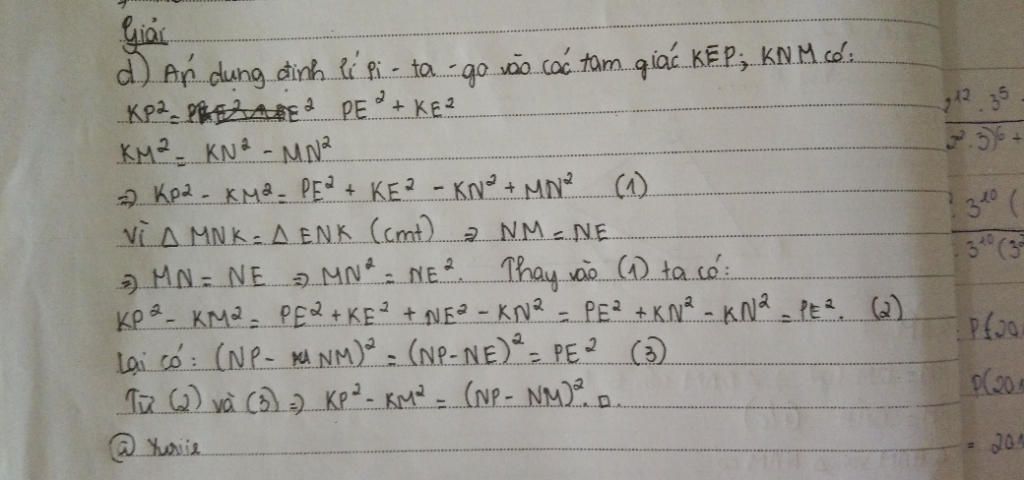 Giải
d) Áp dụng định lí Pi - ta - go vào các tam giác KEP; KNM có:
KP² = PE² + KE²
KM² = KN² - MN²
⇒ KP² - KM² = PE² + KE² - KN² + MN² (1)
Vì Δ MNK = Δ ENK (cmt) ⇒ NM = NE
⇒ MN = NE ⇒ MN² = NE². Thay vào (1) ta có:
KP² - KM² = PE² + KE² + NE² - KN² = PE² + KN² - KN² = PE². (2)
Lại có: (NP - NM)² = (NP - NE)² = PE² (3)
Từ (2) và (3) ⇒ KP² - KM² = (NP - NM)². □.